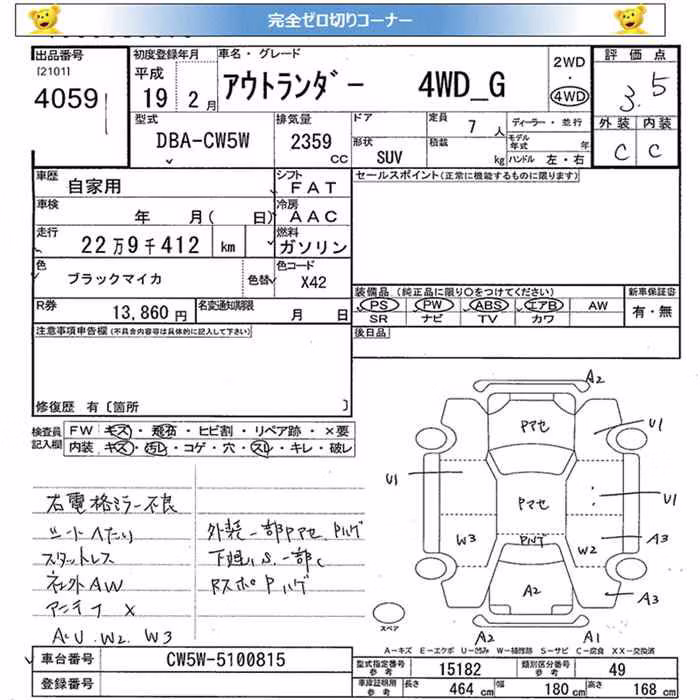 完全ゼロ切りコーナー
出品番号 初度登録年月 車名・グレード 2WD ・ 4WD 評価点
[2101] 4059 平成 19 2月 アウトランダー 4WD_G 3.5
型式 排気量 ドア 定員 7人 ディーラー・並行 外装 内装
DBA-CW5W 2359 cc 形状 SUV 積載 kg モデル年式 年 ハンドル 左・右 C C
車歴 自家用 シフト FAT セールスポイント(正常に機能するものに限ります)
車検 年 月( 日) 冷房 AAC
走行 22万9千412 km 燃料 ガソリン
色 ブラックマイカ 色替 色コード X42
装備品(純正品に限り○をつけてください) 新車保証書
R券 13,860円 名変通知期限 月 日 PS PW ABS エアB AW 有・無
SR ナビ TV カワ
注意事項申告欄(不具合内容等は具体的に記入して下さい) 後日品
修復歴 有〔箇所 〕
検査員記入欄 FW キズ・飛石・ヒビ割・リペア跡・×要
内装 キズ・汚レ・コゲ・穴・スレ・キレ・破レ
右電格ミラー不良
シートへたり 外装一部Pマセ、Pハゲ
スタットレス 下廻りS、一部C
社外AW RスポPハゲ
アンテナ X
A、U、W2、W3
A2
Pマセ U1
U1 Pマセ U1
W3 Pハゲ W2 A3
A2 A3
スペア A2 A1
A−キズ E−エクボ U−凹み W−補修跡 S−サビ C−腐食 XX−交換済
車台番号 CW5W-5100815 型式指定番号 参考 15182 類別区分番号 参考 49
登録番号 車庫証明用 参考 長さ 464 cm 幅 180 cm 高さ 168 cm